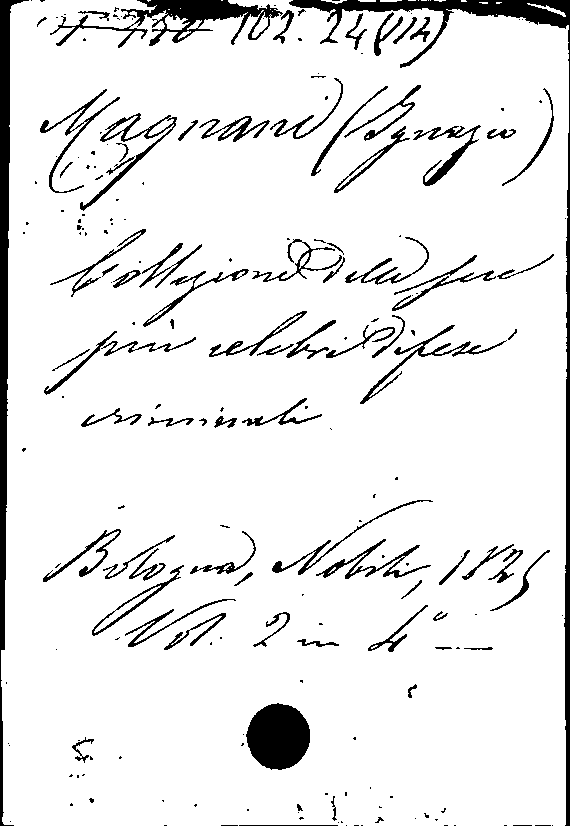 102. 24 (112)
Magnani (Ignazio)
Collezione delle sue
più celebri difese
criminali
Bologna, Nobili, 1825
Vol. 2 in 4°